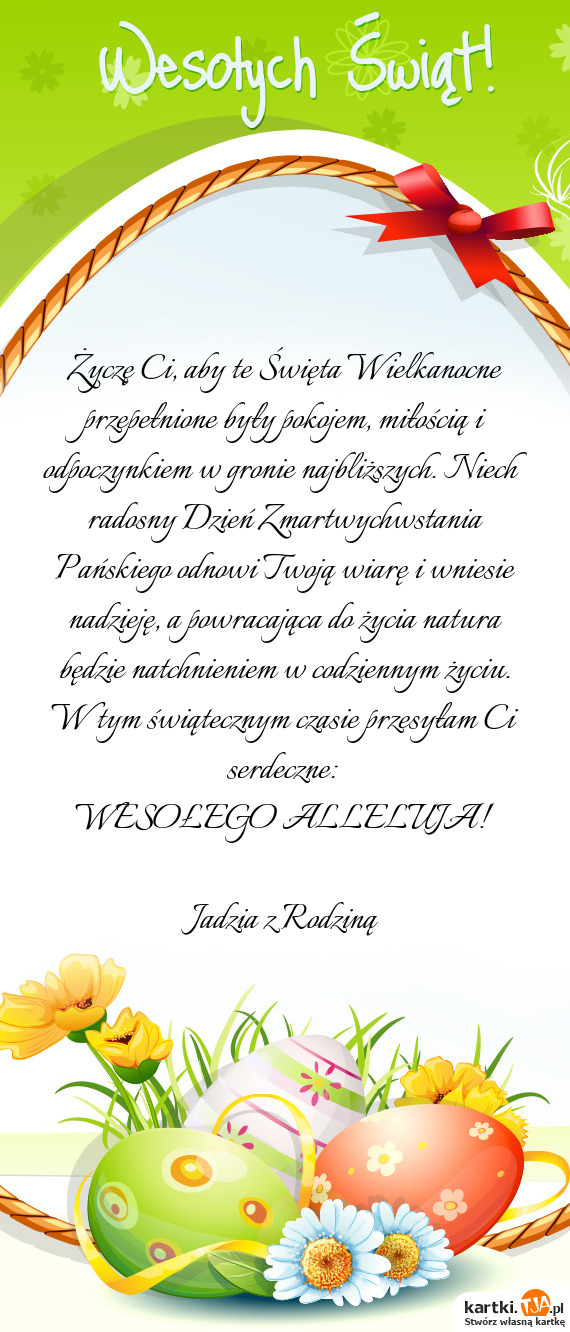 Wesołych Świąt!
Życzę Ci, aby te Święta Wielkanocne
przepełnione były pokojem, miłością i
odpoczynkiem w gronie najbliższych. Niech
radosny Dzień Zmartwychwstania
Pańskiego odnowi Twoją wiarę i wniesie
nadzieję, a powracająca do życia natura
będzie natchnieniem w codziennym życiu.
W tym świątecznym czasie przesyłam Ci
serdeczne:
WESOŁEGO ALLELUJA!
Jadzia z Rodziną
kartki.TJA.pl
Stwórz własną kartkę